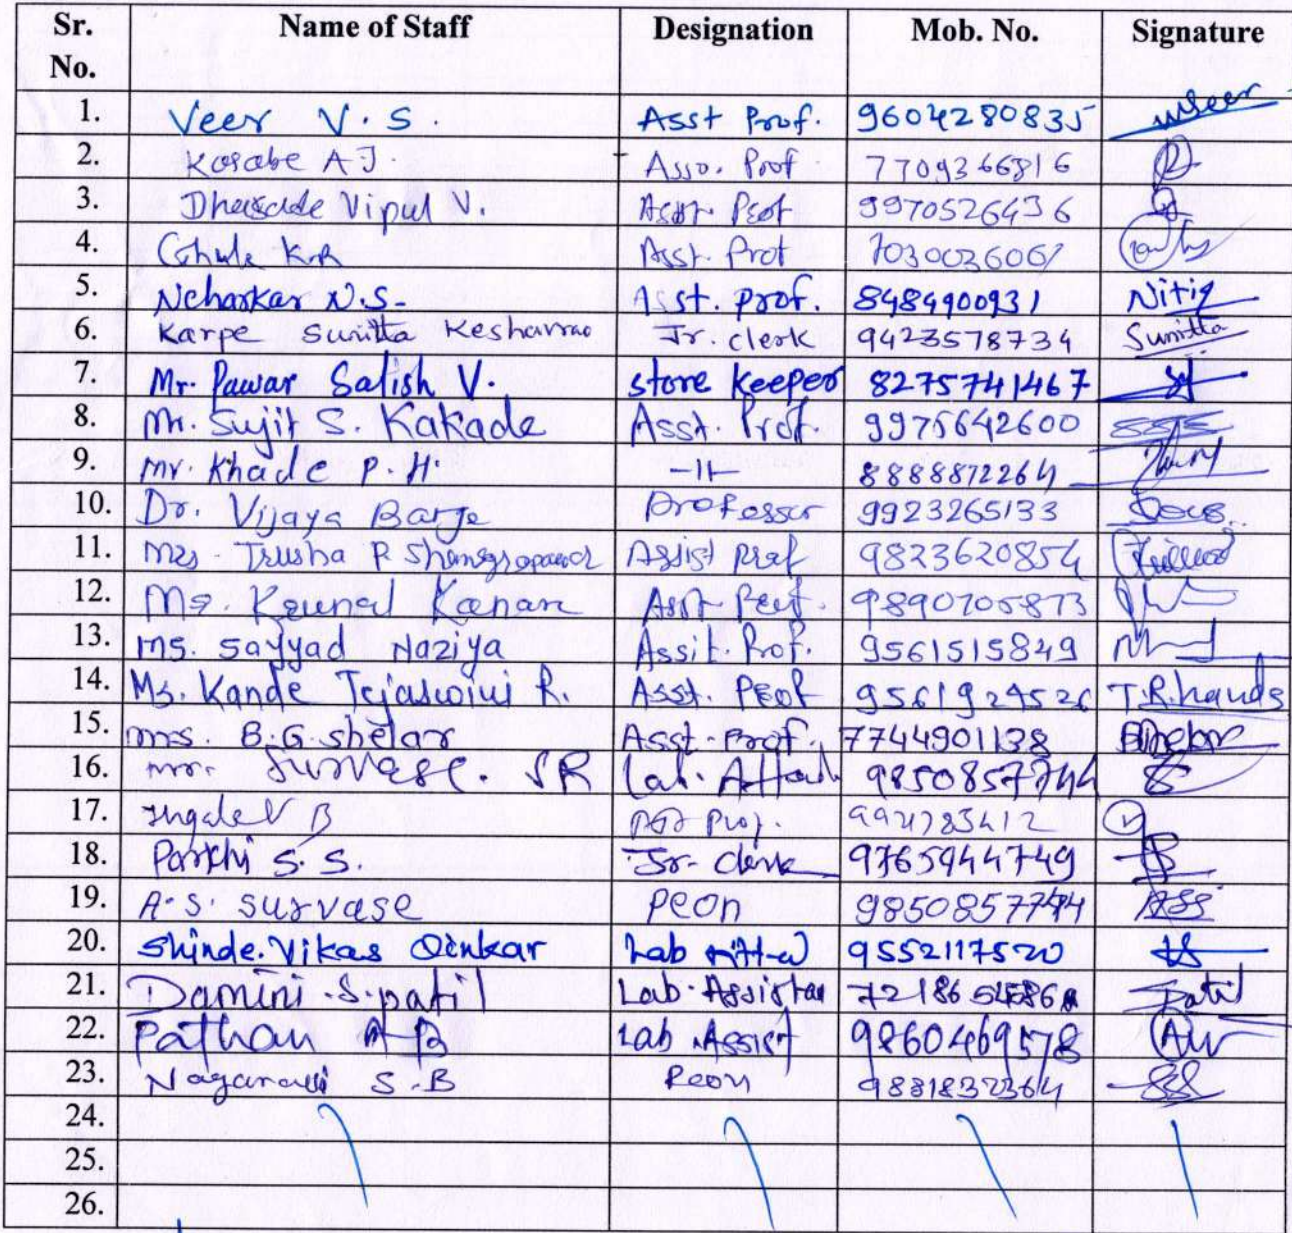 Sr. No. Name of Staff Designation Mob. No. Signature
1. Veer V. S. Asst Prof. 9604280835 
2. Kosabe A J. Asso. Prof 7709366816
3. Dhasade Vipul V. Asst. Prof 9970526436
4. Ghule K.R Asst. Prof 7030036061
5. Neharkar N.S. Asst. prof. 8484900931 Nitin
6. Karpe Sunitta Keshavrao Jr. clerk 9423578734 Sunitta
7. Mr. Pawar Satish V. store keeper 8275741467
8. Mr. Sujit S. Kakade Asst. Prof. 9975642600
9. Mr. Khade P. H. -11- 8888872264
10. Dr. Vijaya Barge Professor 9923265133
11. Mrs. Trusha P. Assist Prof 9823620854
12. Ms. Asst. Prof. 9890705873
13. Ms. Sayyad Naziya Assit. Prof. 9561515849
14. Ms. Kande Tejaswini R. Asst. Prof 9561924526 T.R.kande
15. Ms. B.G. shelar Asst. Prof. 7744901138
16. Mr. Survase. SR Lab. Attend 9850857744
17. Ingale V B 
18. Parkhi S. S. Jr. clerk 9765944749
19. A. S. survase peon 9850857744
20. Shinde. Vikas Dinkar Lab 9552117520
21. Damini. S. patil Lab. Assistan Patil
22. Pathan A B Lab Assist 9860469578
23. S. B Peon 9881832364
24.
25.
26.